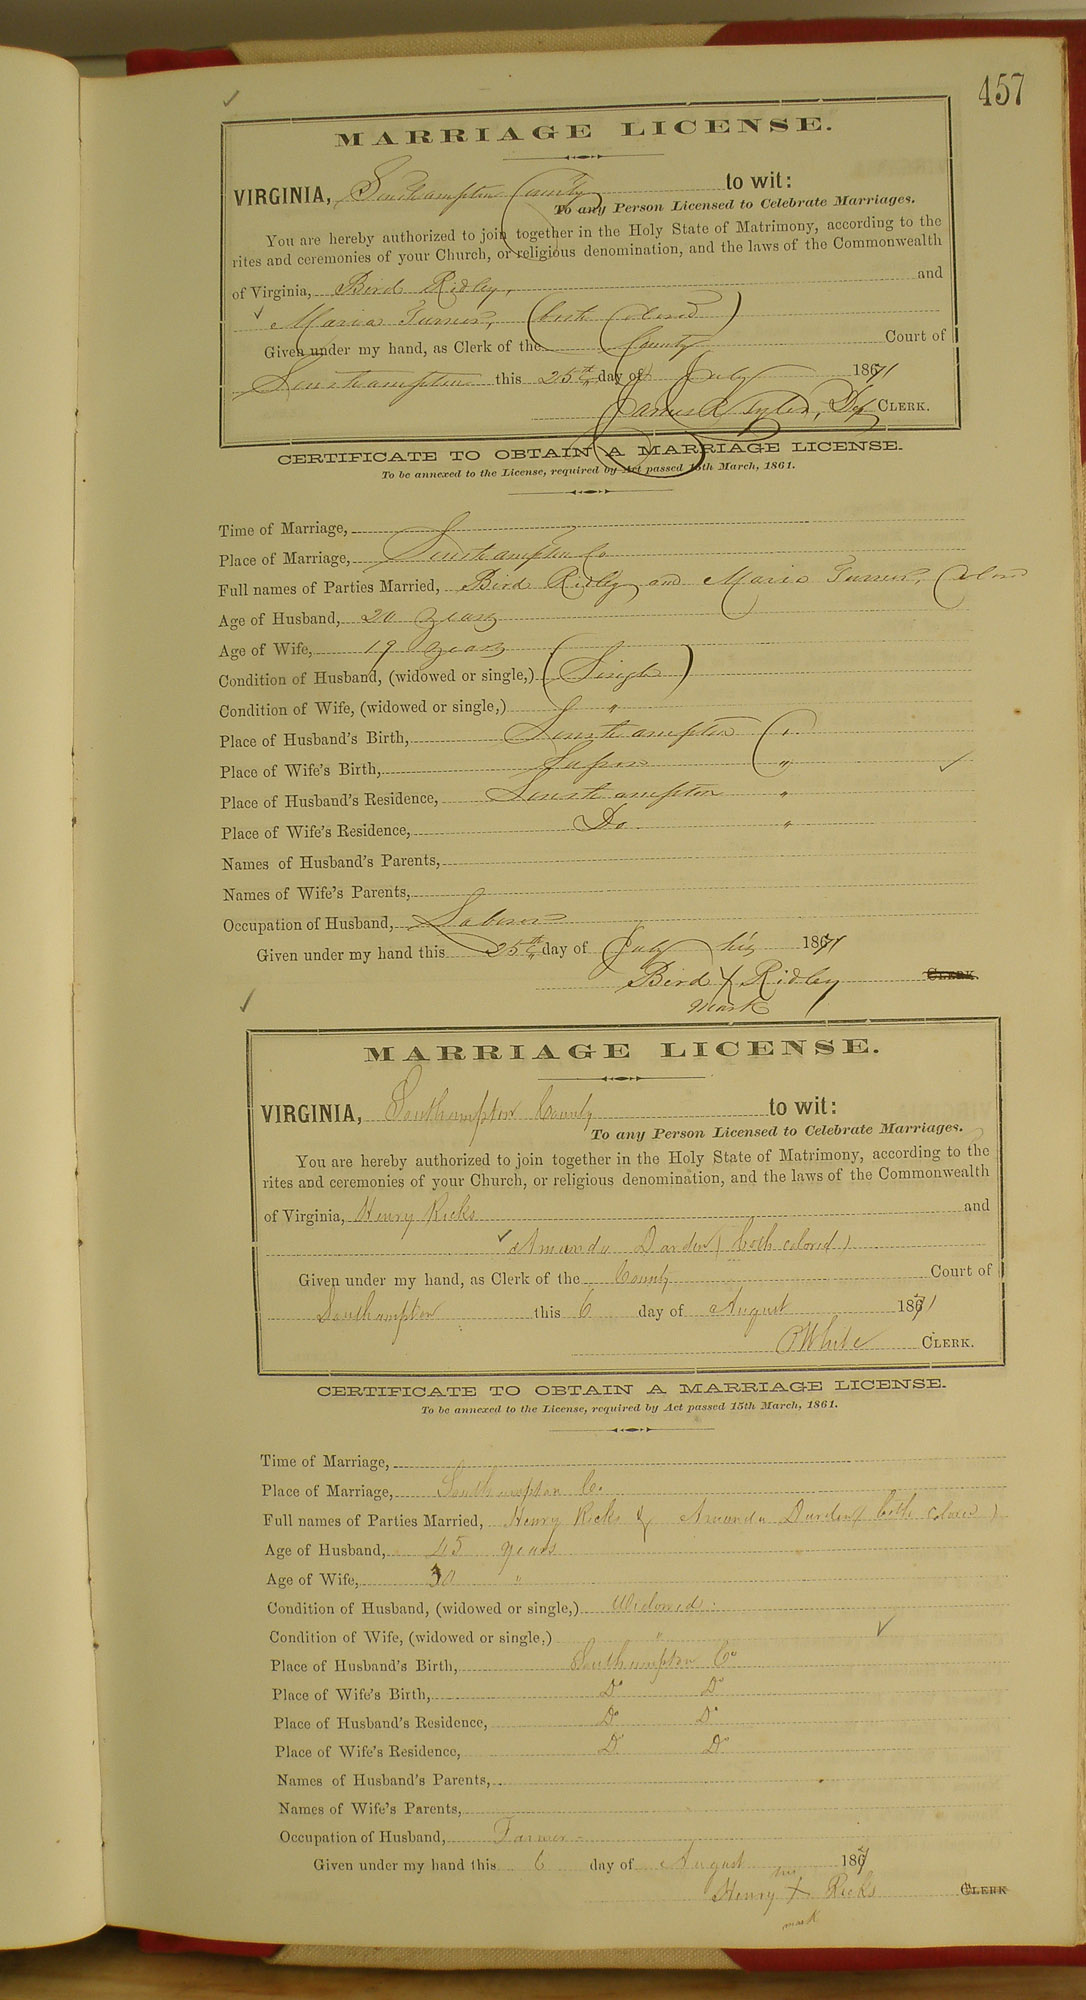 457
MARRIAGE LICENSE.
VIRGINIA, Southampton County to wit:
To any Person Licensed to Celebrate Marriages.
You are hereby authorized to join together in the Holy State of Matrimony, according to the
rites and ceremonies of your Church, or religious denomination, and the laws of the Commonwealth
of Virginia, Bird Ridley, and
Maria Turner, (both Colored)
Given under my hand, as Clerk of the County Court of
Southampton this 25th day of July 1871
James R Tyler, Dy CLERK.
CERTIFICATE TO OBTAIN A MARRIAGE LICENSE.
To be annexed to the License, required by Act passed 15th March, 1861.
Time of Marriage,
Place of Marriage, Southampton Co
Full names of Parties Married, Bird Ridley and Maria Turner, Colored
Age of Husband, 20 years
Age of Wife, 19 years
Condition of Husband, (widowed or single,) (Single)
Condition of Wife, (widowed or single,) "
Place of Husband's Birth, Southampton Co.
Place of Wife's Birth, "
Place of Husband's Residence, Southampton "
Place of Wife's Residence, Do "
Names of Husband's Parents,
Names of Wife's Parents,
Occupation of Husband, Laborer
Given under my hand this 25th day of July 1871
his
Bird X Ridley CLERK.
mark
MARRIAGE LICENSE.
VIRGINIA, Southampton County to wit:
To any Person Licensed to Celebrate Marriages.
You are hereby authorized to join together in the Holy State of Matrimony, according to the
rites and ceremonies of your Church, or religious denomination, and the laws of the Commonwealth
of Virginia, Henry Ricks and
Amanda Darden (both colored)
Given under my hand, as Clerk of the County Court of
Southampton this 6 day of August 1871
White CLERK.
CERTIFICATE TO OBTAIN A MARRIAGE LICENSE.
To be annexed to the License, required by Act passed 15th March, 1861.
Time of Marriage,
Place of Marriage, Southampton Co.
Full names of Parties Married, Henry Ricks & Amanda Darden (both colored)
Age of Husband, 45 years
Age of Wife, 30 "
Condition of Husband, (widowed or single,) Widowed.
Condition of Wife, (widowed or single,) "
Place of Husband's Birth, Southampton Co
Place of Wife's Birth, Do Do
Place of Husband's Residence, Do Do
Place of Wife's Residence, Do Do
Names of Husband's Parents,
Names of Wife's Parents,
Occupation of Husband, Farmer
Given under my hand this 6 day of August 1871
his
Henry X Ricks CLERK
mark